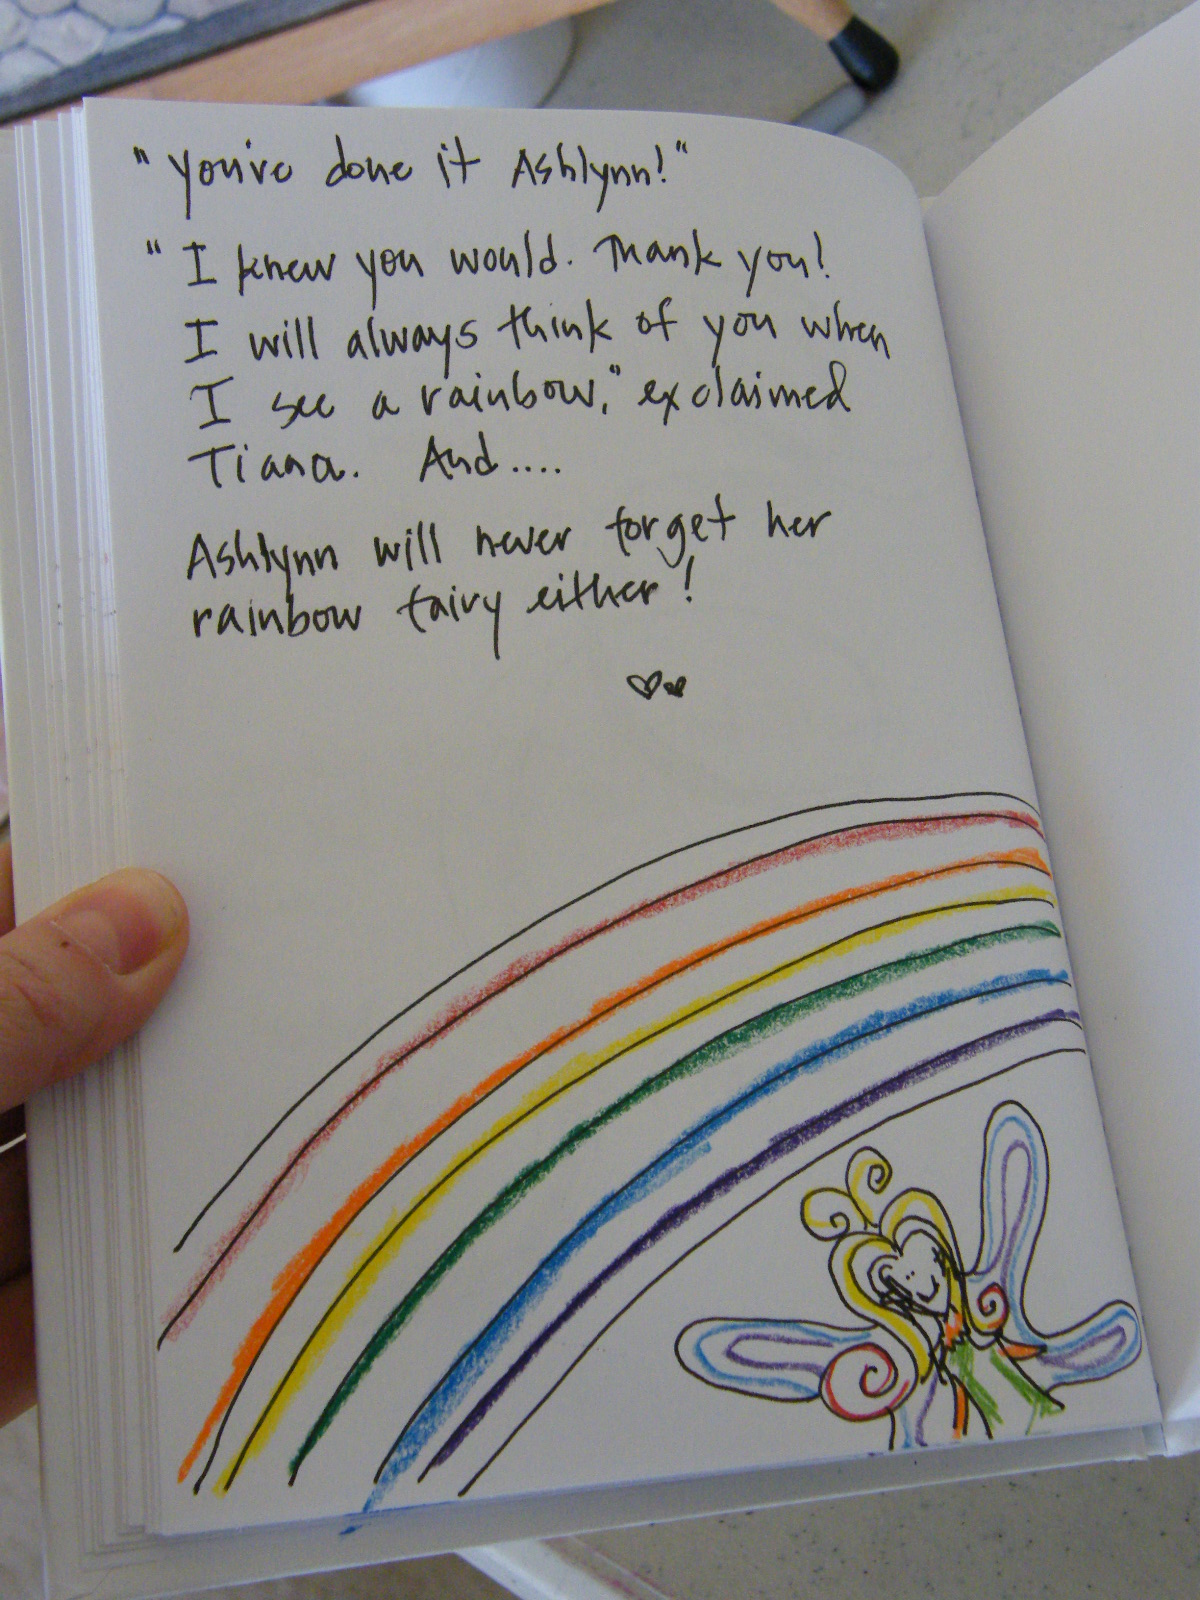 "you've done it Ashlynn!"
"I knew you would. Thank you!
I will always think of you when
I see a rainbow," exclaimed
Tiana. And....
Ashlynn will never forget her
rainbow fairy either!